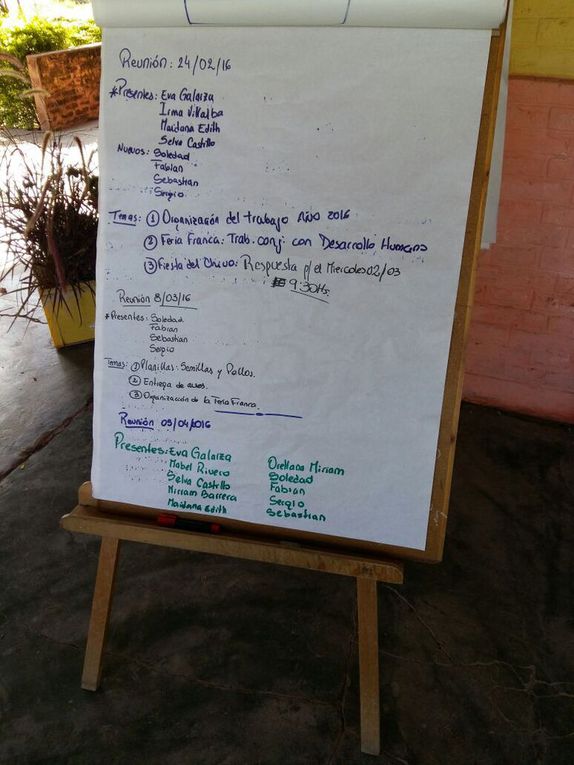 Reunión: 24/02/16
*Presentes: Eva Galarza
Irma Villalba
Maidana Edith
Selva Castillo
Nuevos: Soledad
Fabian
Sebastian
Sergio
Temas: ① Organización del trabajo Año 2016
② Feria Franca: Trab. conj. con Desarrollo Humano
③ Fiesta del Chivo: Respuesta p/el Miercoles 02/03
9:30Hs.
Reunión 8/03/16
*Presentes: Soledad
Fabian
Sebastian
Sergio
Temas: ① Planillas: Semillas y Pollos.
② Entrega de aves.
③ Organización de la Feria Franca.
Reunión 05/04/2016
Presentes: Eva Galarza
Mabel Rivero
Selva Castillo
Miriam Barrera
Maidana Edith
Orellana Miriam
Soledad
Fabian
Sergio
Sebastian